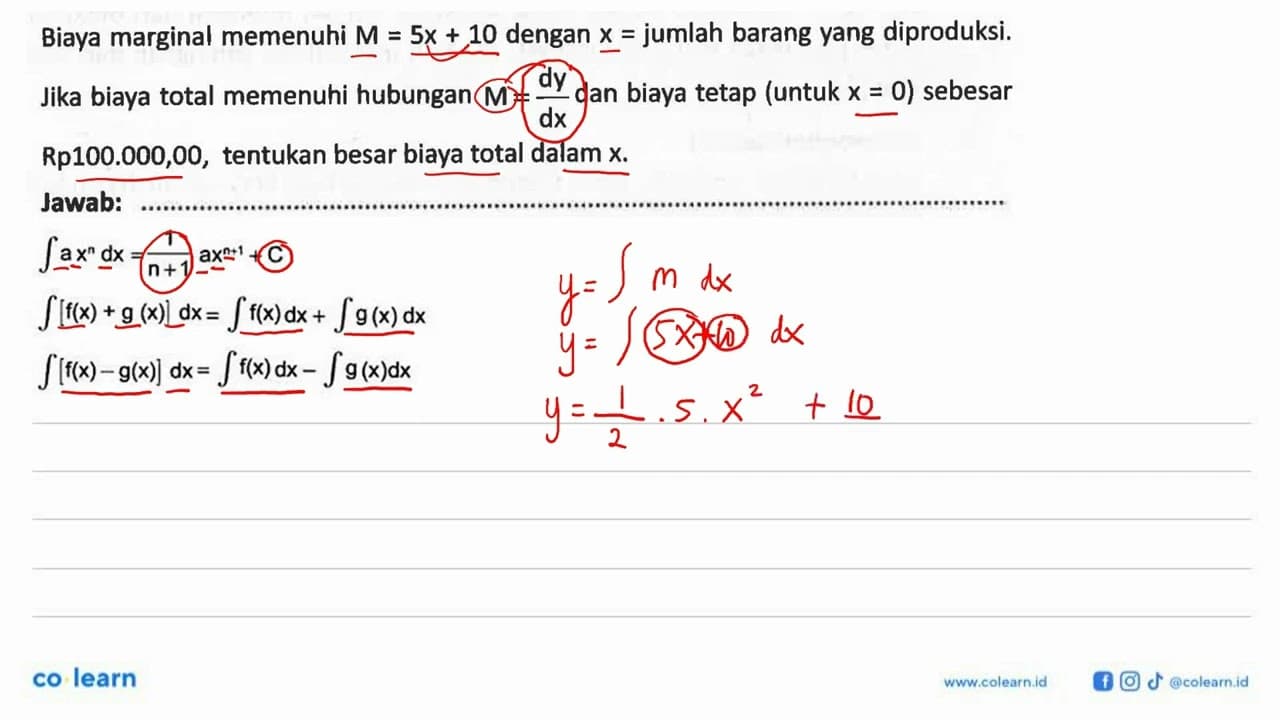 Biaya marginal memenuhi M = 5x + 10 dengan x = jumlah barang yang diproduksi.
Jika biaya total memenuhi hubungan M = dy/dx dan biaya tetap (untuk x = 0) sebesar
Rp100.000,00, tentukan besar biaya total dalam x.
Jawab: ........................................................................
∫ a xⁿ dx = 1/(n+1) axⁿ⁺¹ + C
∫ [f(x) + g (x)] dx = ∫ f(x) dx + ∫ g (x) dx
∫ [f(x) – g(x)] dx = ∫ f(x) dx – ∫ g (x)dx
y = ∫ m dx
y = ∫ 5x + 10 dx
y = 1/2 . 5 . x² + 10
co learn
www.colearn.id
@colearn.id